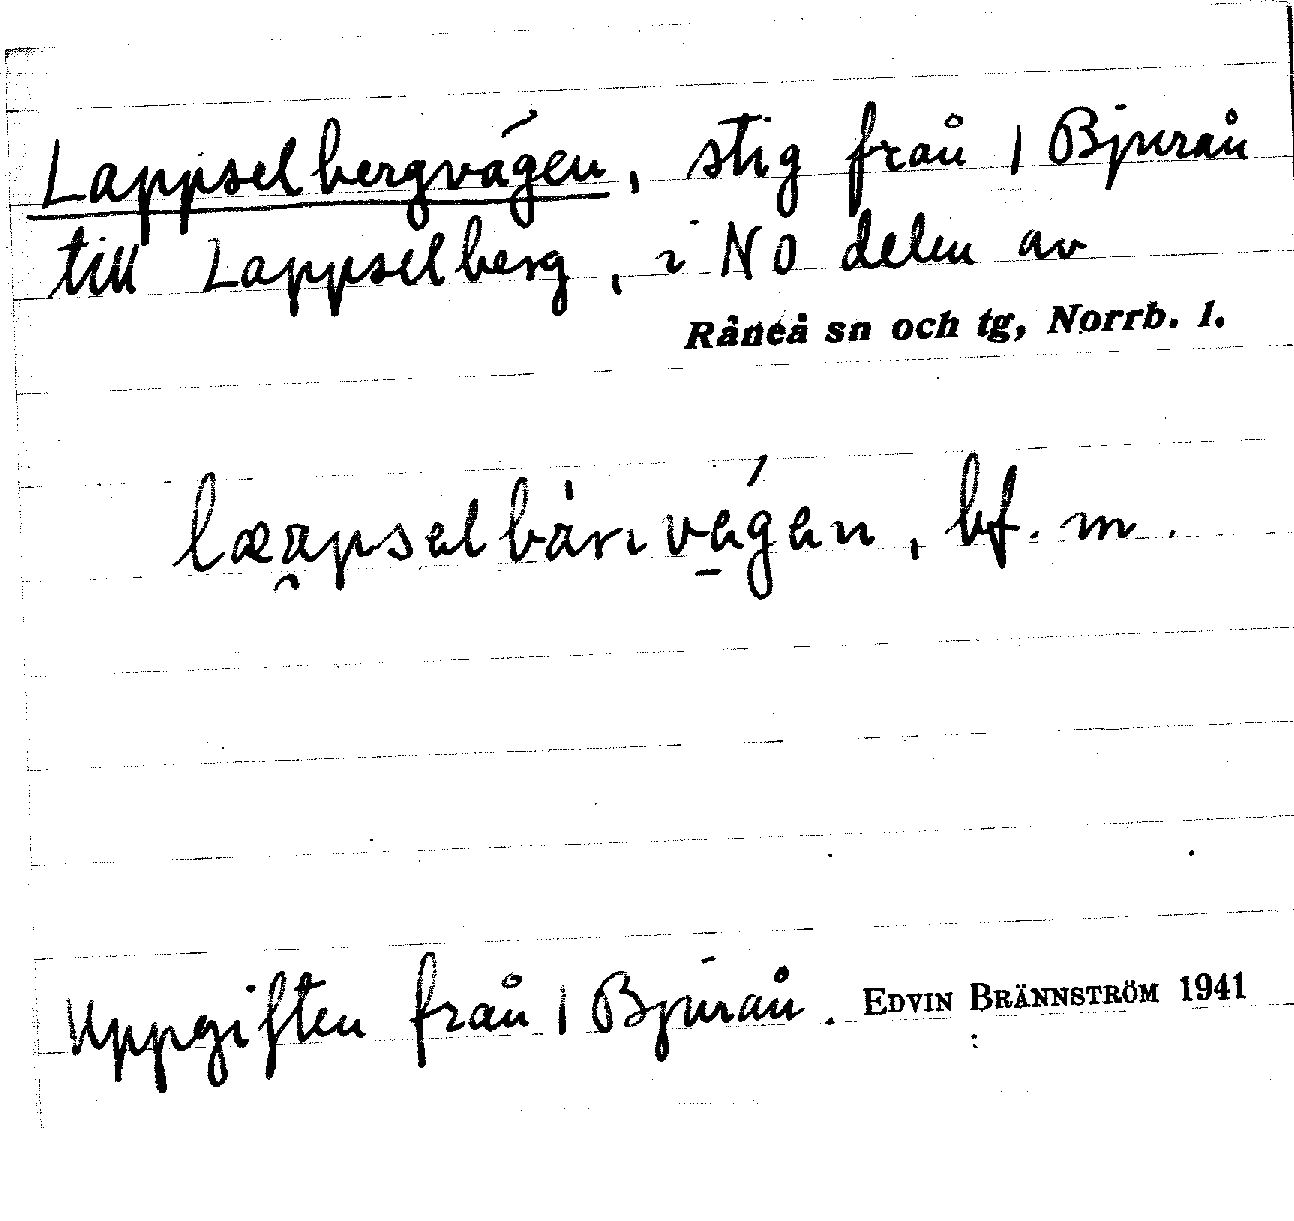 Lappselbergvägen, stig från 1 Bjurån
till Lappselberg, i NO delen av
Råneå sn och tg, Norrb. l.
bf. m.
Uppgiften från 1 Bjurån. EDVIN BRÄNNSTRÖM 1941